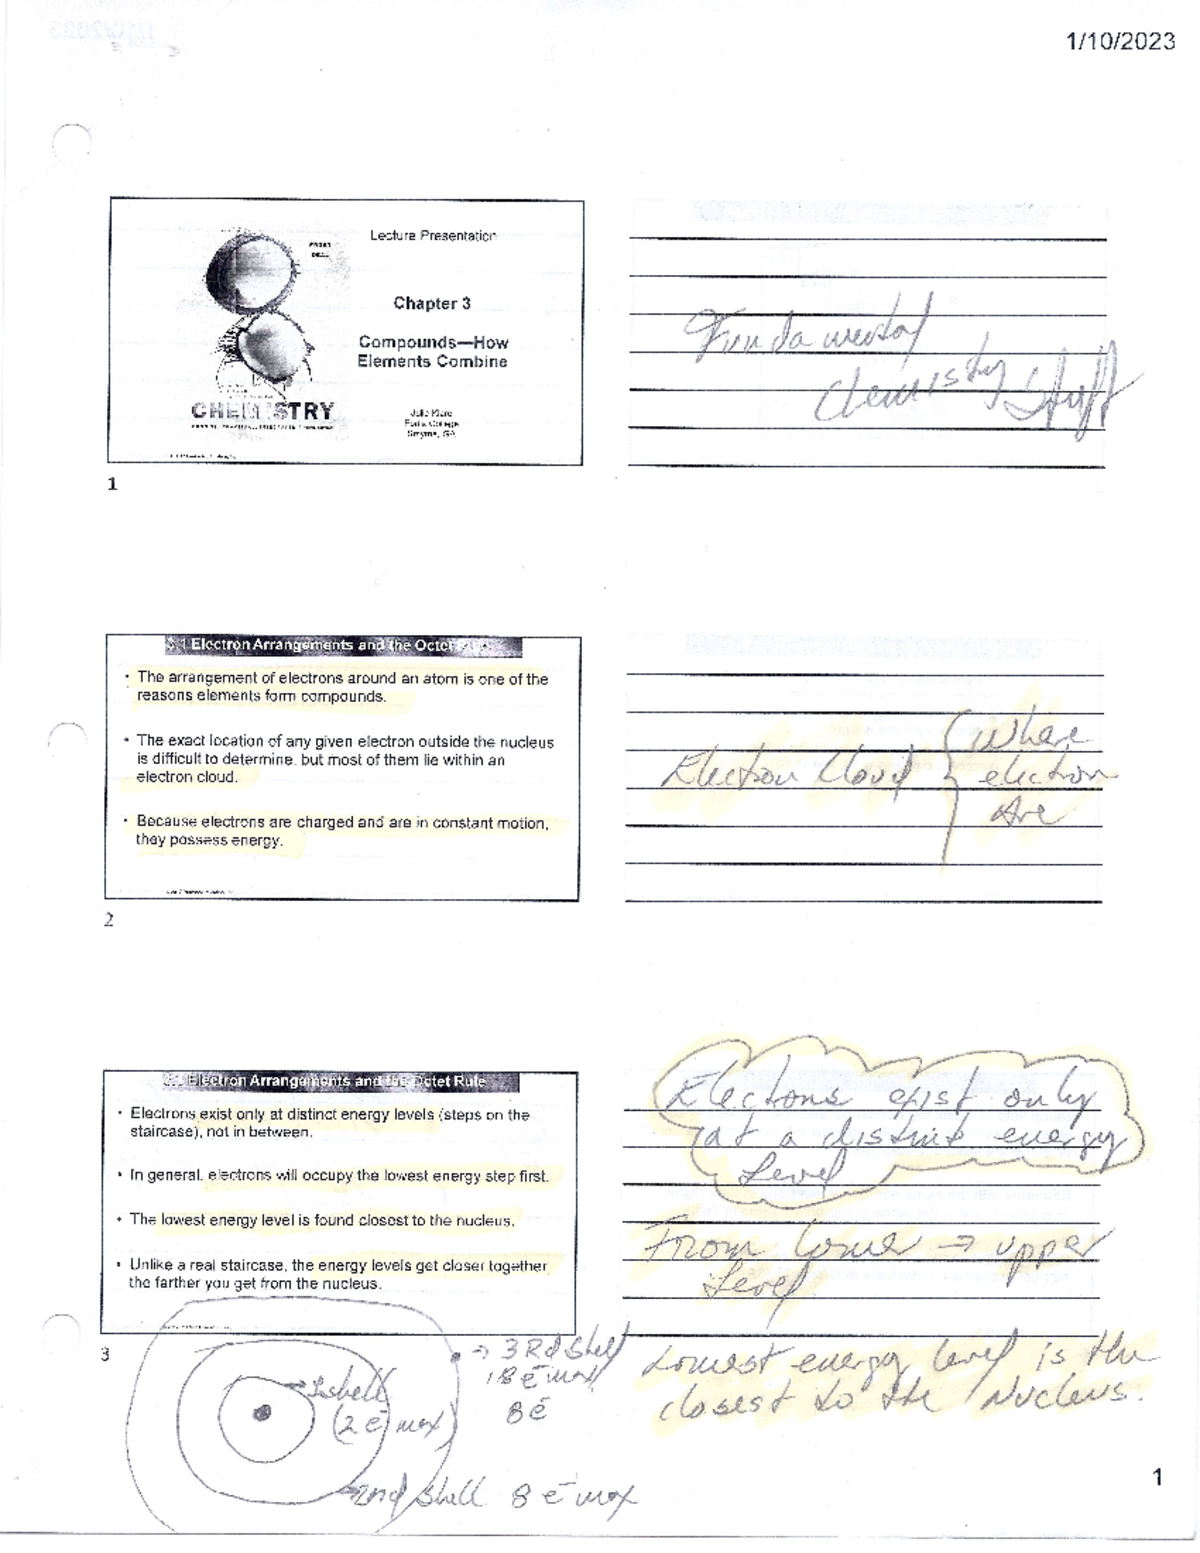 1/10/2023
Lecture Presentation
Chapter 3
Compounds—How
Elements Combine
CHEMISTRY
Julie Klare
Smyrna, GA
1
Fundamental
Chemistry Stuff
3.1 Electron Arrangements and the Octet Rule
• The arrangement of electrons around an atom is one of the
reasons elements form compounds.
• The exact location of any given electron outside the nucleus
is difficult to determine, but most of them lie within an
electron cloud.
• Because electrons are charged and are in constant motion,
they possess energy.
2
Electron Cloud
Where
electron
Are
3.1 Electron Arrangements and the Octet Rule
• Electrons exist only at distinct energy levels (steps on the
staircase), not in between.
• In general, electrons will occupy the lowest energy step first.
• The lowest energy level is found closest to the nucleus.
• Unlike a real staircase, the energy levels get closer together
the farther you get from the nucleus.
3
Electrons exist only
at a distinct energy
Level
From lower → upper
Level
Lowest energy level is the
closest to the Nucleus.
→ 3Rd shell
18 e⁻ max
8 e⁻
shell
(2 e⁻ max)
2nd shell 8 e⁻ max
1